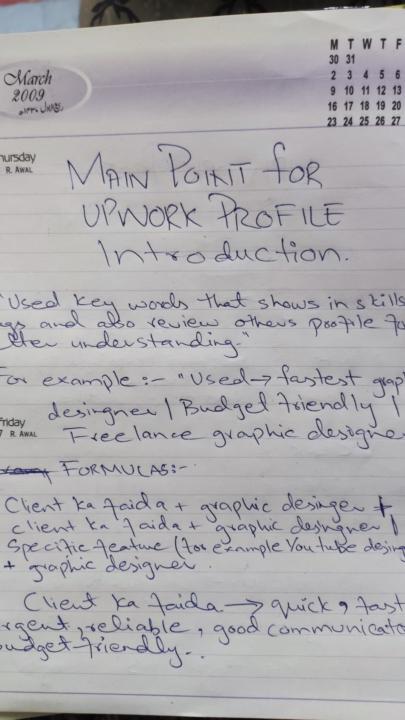 March
2009
M T W T F
30 31
2 3 4 5 6
9 10 11 12 13
16 17 18 19 20
23 24 25 26 27
hursday
R. AWAL
MAIN POINT for
UPWORK PROFILE
Introduction.
"Used key words that shows in skills
gs and also review others profile fo
tter understanding."
For example:- "Used→fastest grap
desingner | Budgel friendly |
Friday
7 R. AWAL
Freelance graphic designe
FORMULAS:-
Client ka faida + graphic desinger +
client ka faida + graphic desingner |
Specific feature (for example Youtube desing
+ graphic designer.
Client ka faida → quick, fast
rgent, reliable, good communicato
udget-friendly..